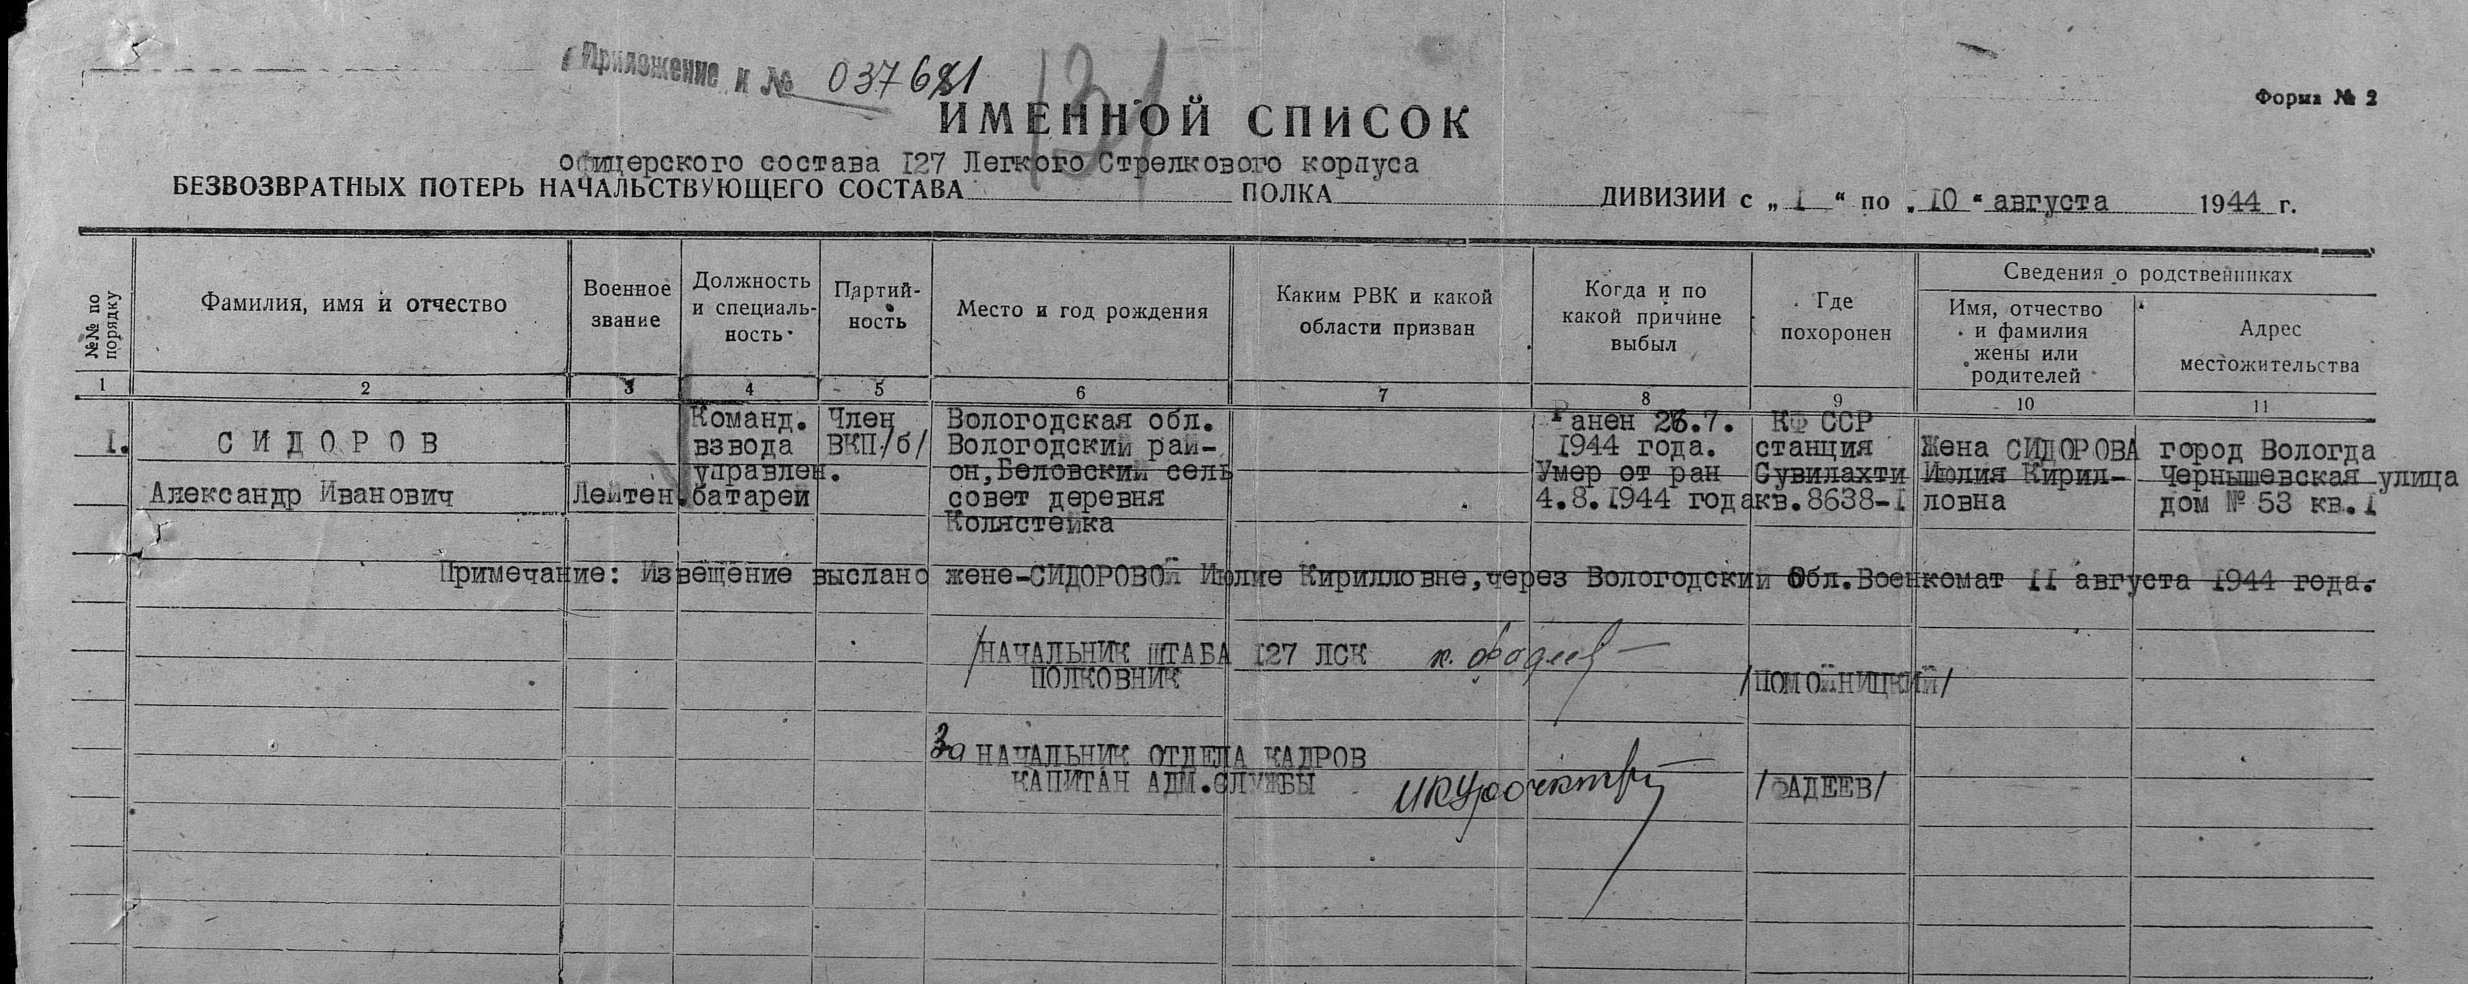 Приложение к № 037681
131
Форма № 2
ИМЕННОЙ СПИСОК
офицерского состава 127 Легкого Стрелкового корпуса
БЕЗВОЗВРАТНЫХ ПОТЕРЬ НАЧАЛЬСТВУЮЩЕГО СОСТАВА ПОЛКА ДИВИЗИИ с „ I “ по „ 10 “ августа 1944 г.
№№ по порядку
Фамилия, имя и отчество
Военное
звание
Должность
и специаль-
ность
Партий-
ность
Место и год рождения
Каким РВК и какой
области призван
Когда и по
какой причине
выбыл
Где
похоронен
Сведения о родственниках
Имя, отчество
и фамилия
жены или
родителей
Адрес
местожительства
1 2 3 4 5 6 7 8 9 10 11
I.
СИДОРОВ
Александр Иванович
Лейтен.
Команд.
взвода
управлен.
батареи
Член
ВКП/б/
Вологодская обл.
Вологодский рай-
он, Беловский сель
совет деревня
Колястейка
Ранен 26.7.
1944 года.
Умер от ран
4.8.1944 года
КФ ССР
станция
Сувилахти
кв.8638-I
Жена СИДОРОВА
Июлия Кирил-
ловна
город Вологда
Чернышевская улица
дом № 53 кв.I
Примечание: Извещение выслано жене-СИДОРОВОЙ Июлие Кирилловне,через Вологодский Обл.Военкомат II августа 1944 года.
/НАЧАЛЬНИК ШТАБА 127 ЛСК
ПОЛКОВНИК
п. Фадеев
/ПОМОЙНИЦКИЙ/
За НАЧАЛЬНИК ОТДЕЛА КАДРОВ
КАПИТАН АДМ.СЛУЖБЫ
/ФАДЕЕВ/